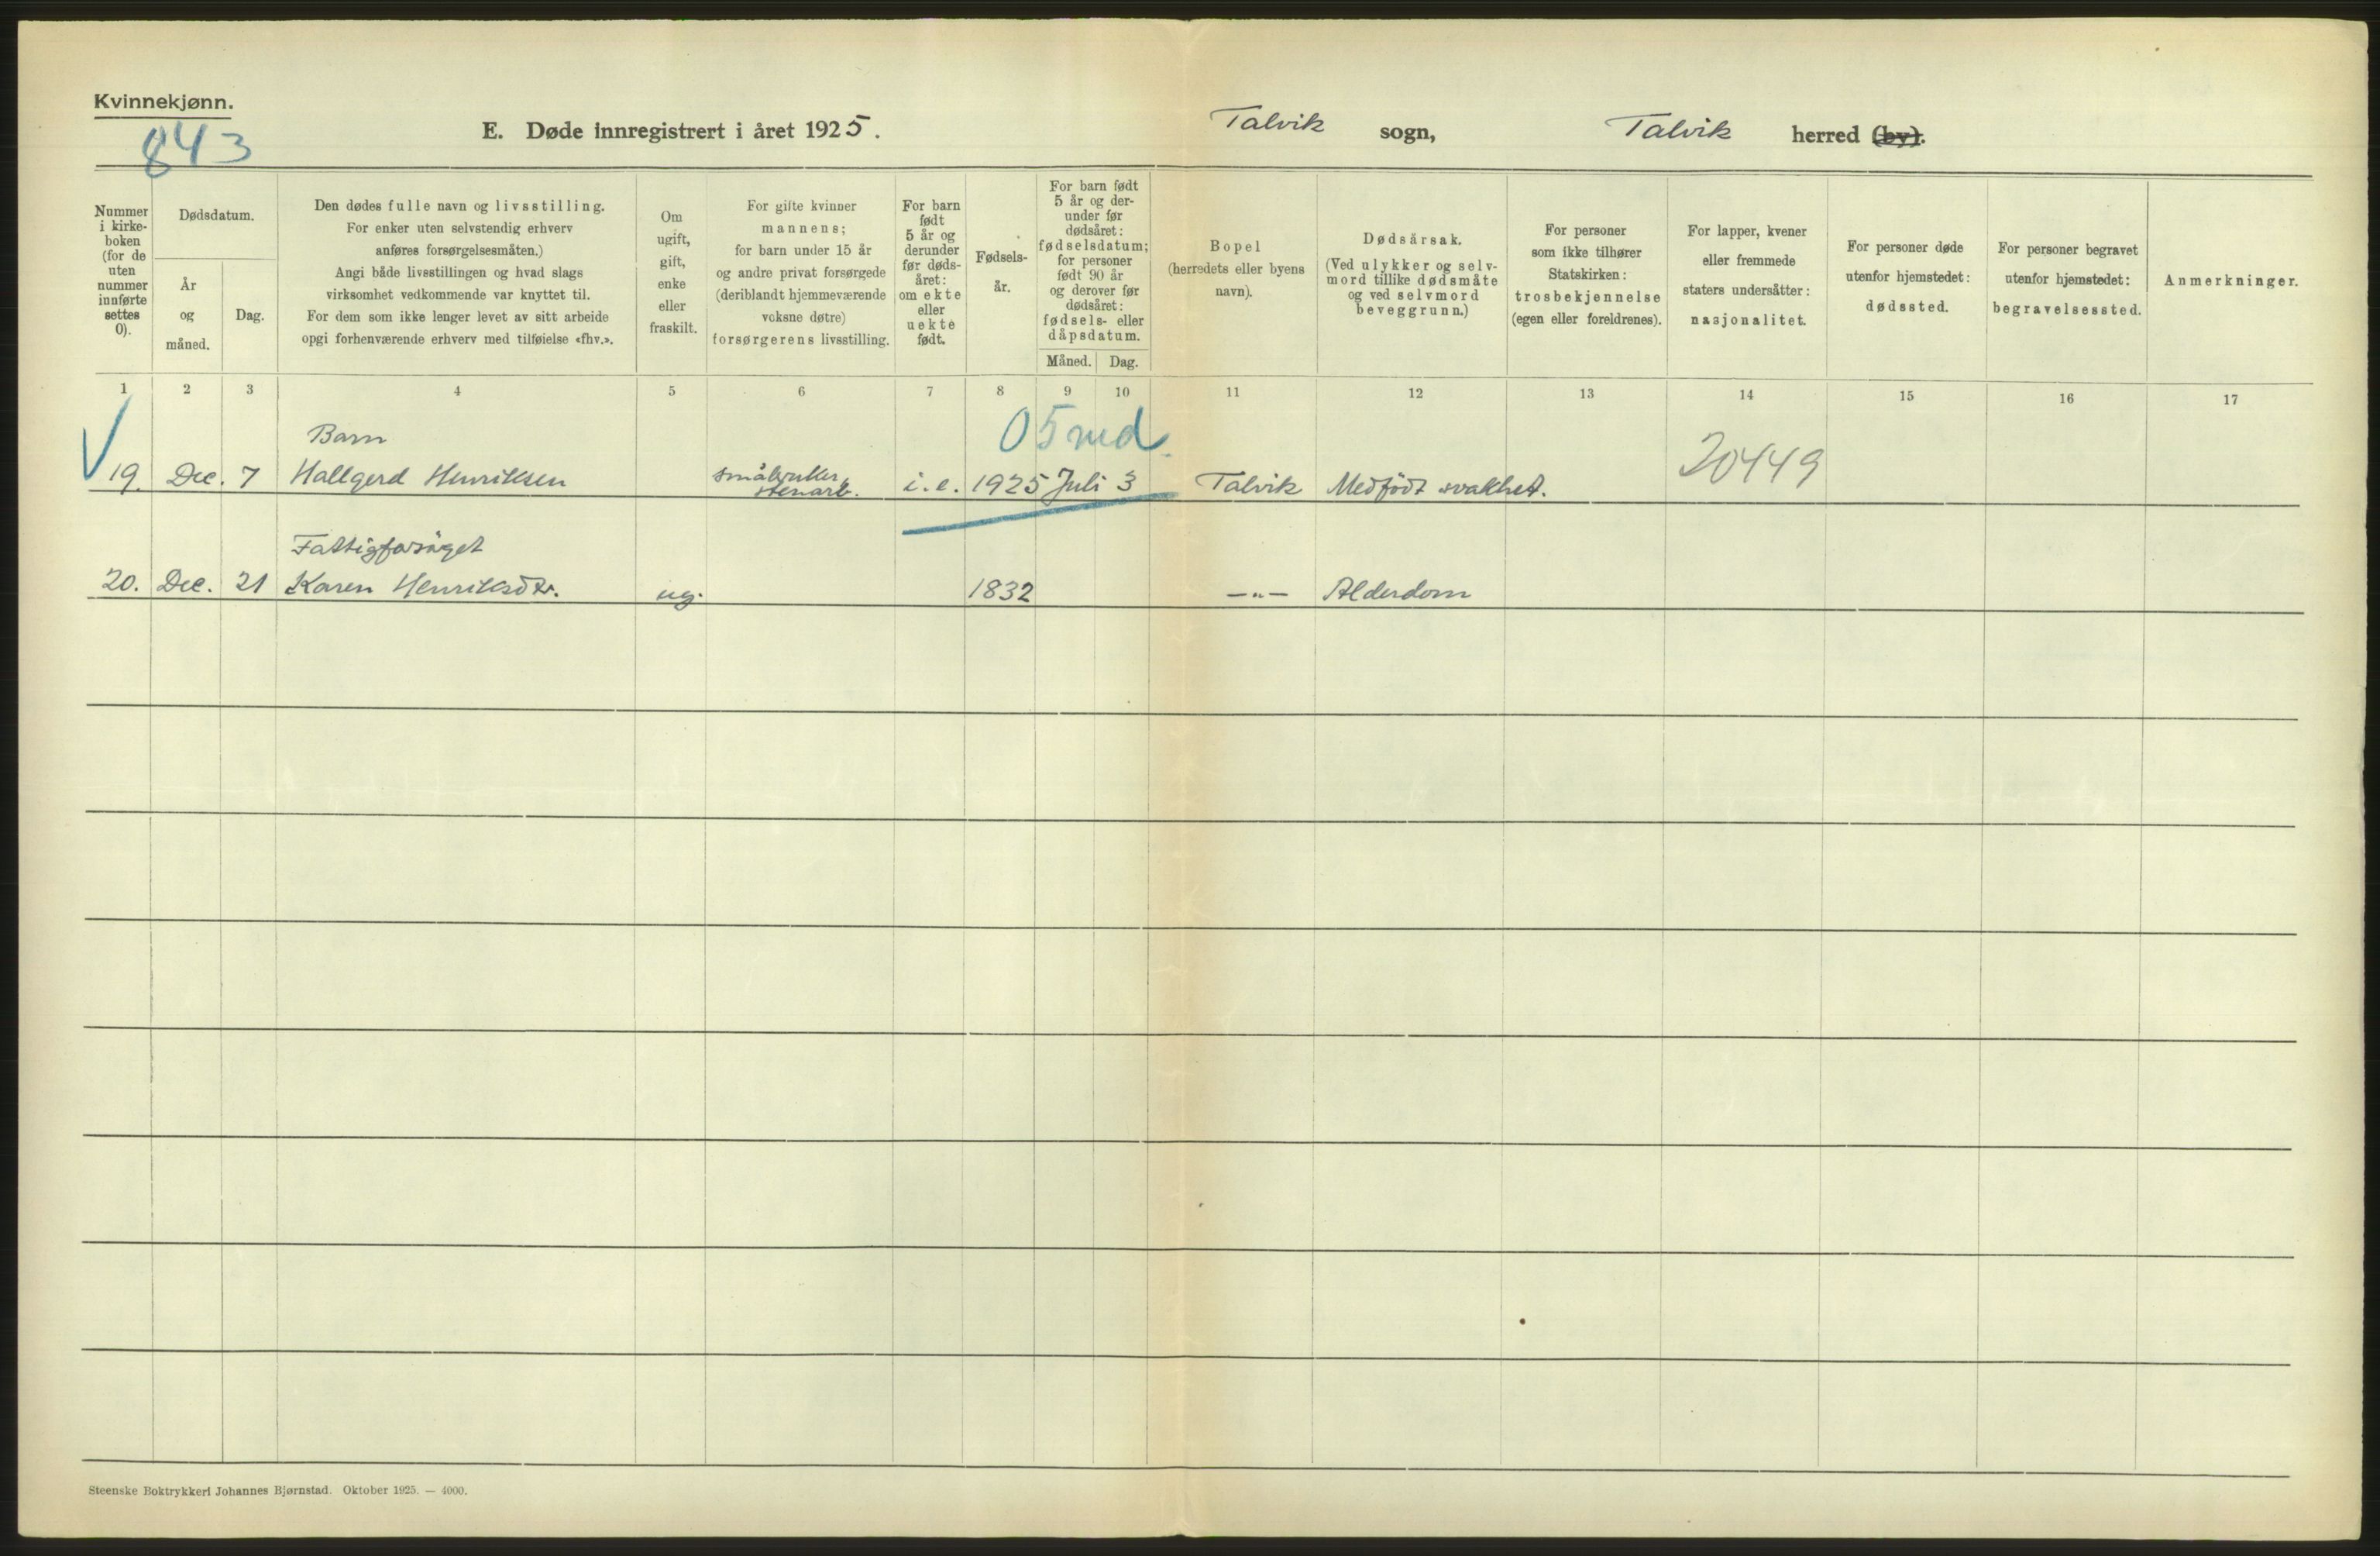 Kvinnekjønn.
843
E. Døde innregistrert i året 1925.
Talvik sogn, Talvik herred (by).
Nummer
i kirke-
boken
(for de
uten
nummer
innførte
settes
0).
Dødsdatum.
År
og
måned.
Dag.
Den dødes fulle navn og livsstilling.
For enker uten selvstendig erhverv
anføres forsørgelsesmåten.)
Angi både livsstillingen og hvad slags
virksomhet vedkommende var knyttet til.
For dem som ikke lenger levet av sitt arbeide
opgi forhenværende erhverv med tilføielse «fhv.».
Om
ugift,
gift,
enke
eller
fraskilt.
For gifte kvinner
mannens;
for barn under 15 år
og andre privat forsørgede
(deriblandt hjemmeværende
voksne døtre)
forsørgerens livsstilling.
For barn
født
5 år og
derunder
før døds-
året:
om ekte
eller
uekte
født.
Fødsels-
år.
For barn født
5 år og der-
under før
dødsåret:
fødselsdatum;
for personer
født 90 år
og derover før
dødsåret:
fødsels- eller
dåpsdatum.
Måned. Dag.
Bopel
(herredets eller byens
navn).
Dødsårsak.
(Ved ulykker og selv-
mord tillike dødsmåte
og ved selvmord
beveggrunn.)
For personer
som ikke tilhører
Statskirken:
trosbekjennelse
(egen eller foreldrenes).
For lapper, kvener
eller fremmede
staters undersåtter:
nasjonalitet.
For personer døde
utenfor hjemstedet:
dødssted.
For personer begravet
utenfor hjemstedet:
begravelsessted.
Anmerkninger.
1 2 3 4 5 6 7 8 9 10 11 12 13 14 15 16 17
Barn 05 md.
19. Dec. 7 Hallgerd Henriksen småbruker, stenarb. i.e. 1925 Juli 3 Talvik Medfödt svakhet. 20449
Fattigforsörget
20. Dec. 21 Karen Henriksdtr. ug. 1832 —"— Alderdom
Steenske Boktrykkeri Johannes Bjørnstad. Oktober 1925. — 4000.